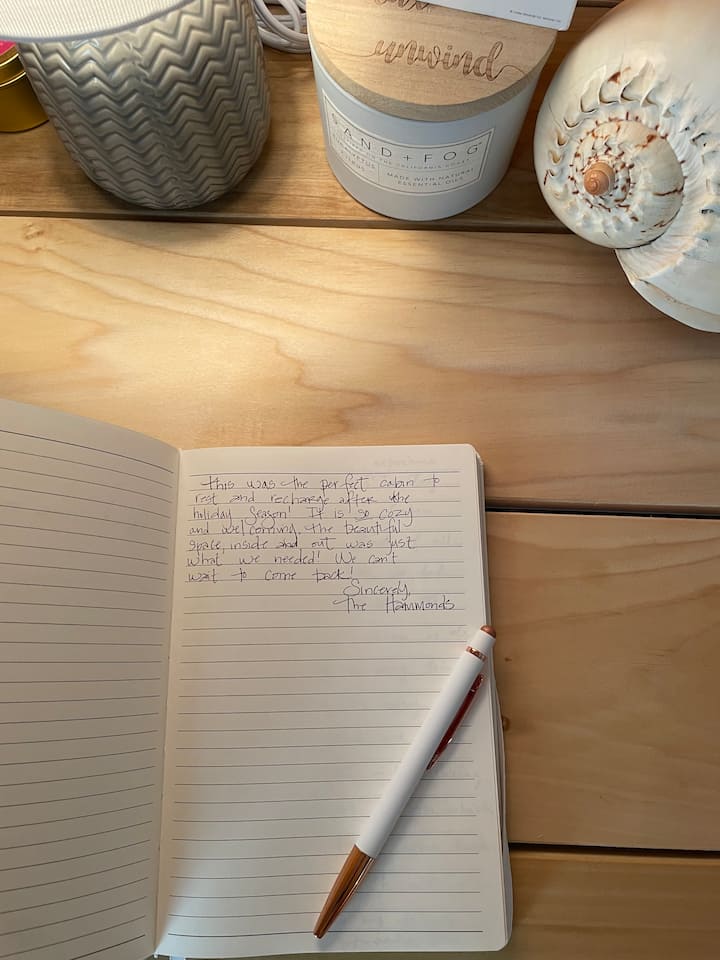 unwind
SAND + FOG
MADE WITH NATURAL
ESSENTIAL OILS
This was the perfect cabin to
rest and recharge after the
holiday season! It is so cozy
and welcoming, the beautiful
space inside and out was just
what we needed! We can't
wait to come back!
Sincerely,
The Hammonds